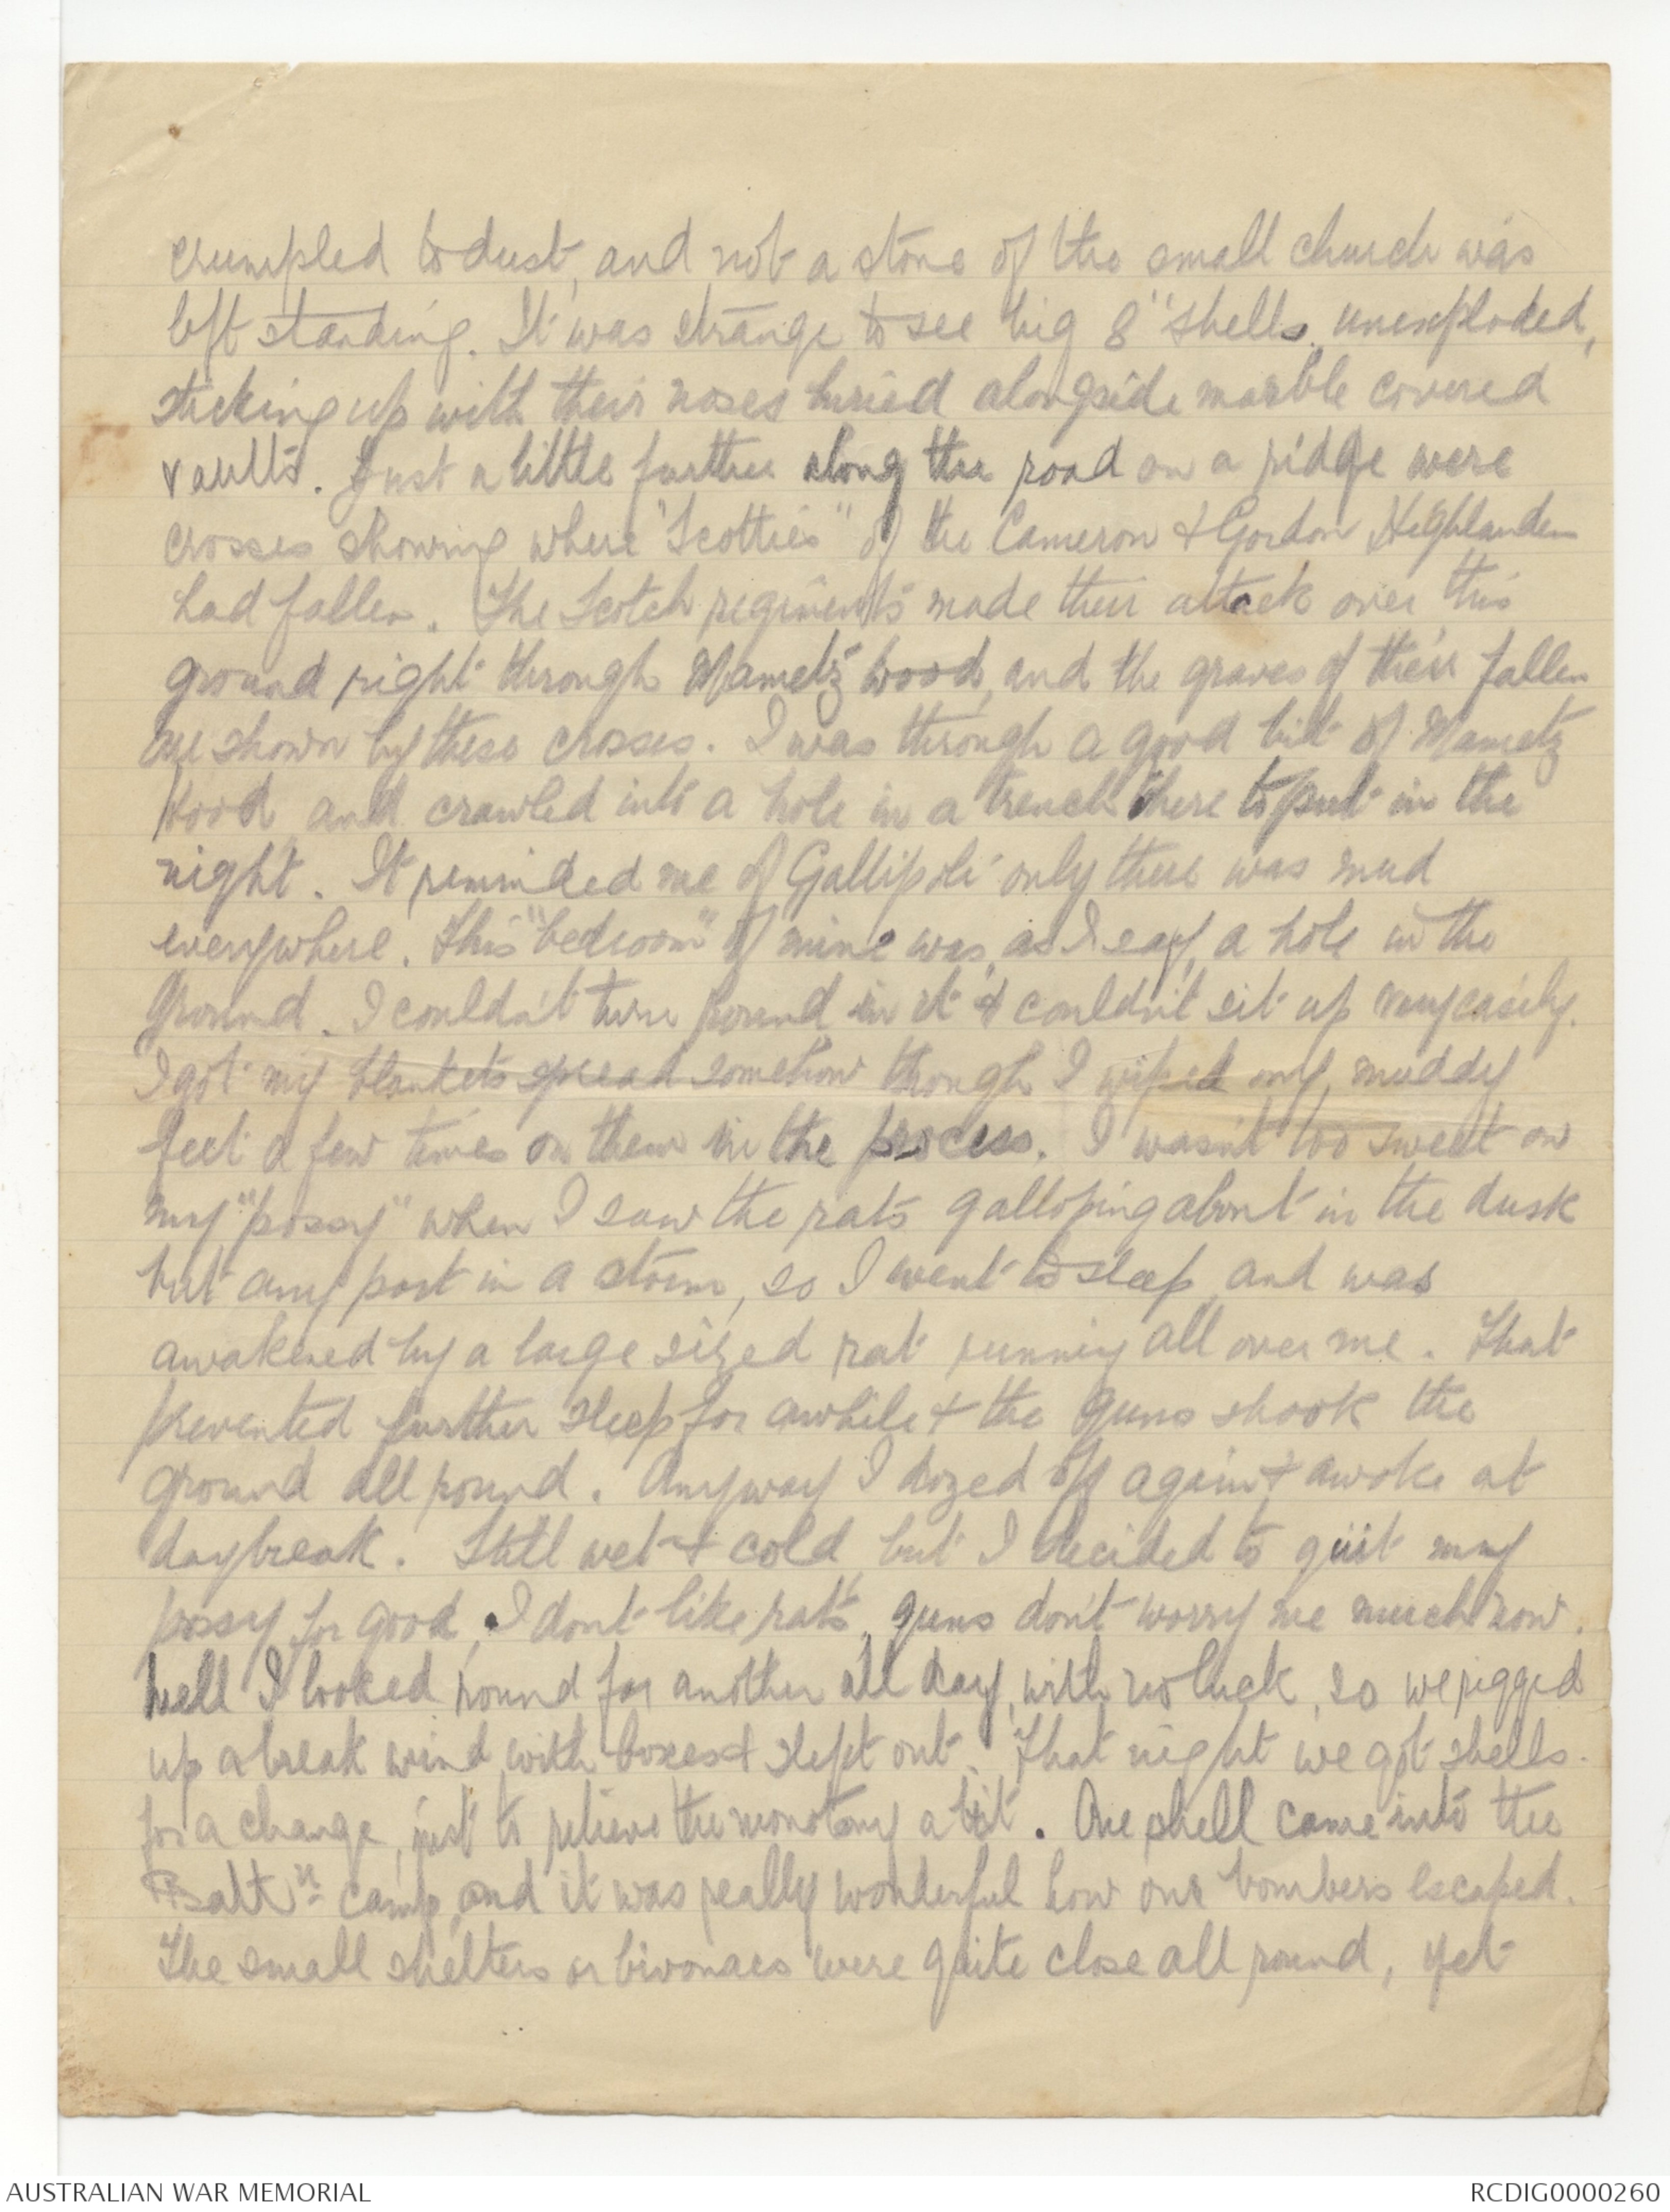 crumpled to dust, and not a stone of the small church was
left standing. It was strange to see big 8" shells, unexploded,
sticking up with their noses buried alongside marble covered
vaults. Just a little further along the road on a ridge were
crosses showing where "Scotties" of the Cameron & Gordon Highlanders
had fallen. The Scotch regiments made their attack over this
ground right through Mametz Wood, and the graves of their fallen
are shown by these crosses. I was through a good bit of Mametz
Wood and crawled into a hole in a trench there to put in the
night. It reminded me of Gallipoli only there was mud
everywhere. This "bedroom" of mine was, as I say, a hole in the
ground. I couldn't turn round in it & couldn't sit up very easily.
I got my blankets spread somehow though I wiped my muddy
feet a few times on them in the process. I wasn't too sweet on
my "possy" when I saw the rats galloping about in the dusk
but any port in a storm, so I went to sleep and was
awakened by a large sized rat running all over me. That
prevented further sleep for awhile & the guns shook the
ground all round. Anyway I dozed off again & awoke at
daybreak. Still wet & cold, but I decided to quit my
possy for good, I dont like rats, guns don't worry me much now.
Well I looked round for another all day, with no luck, so we rigged
up a break wind with boxes & slept out. That night we got shells
for a change, just to relieve the monotony a bit. One shell came into the
Battn camp, and it was really wonderful how our bombers escaped.
The small shelters or bivouacs were quite close all round, yet
AUSTRALIAN WAR MEMORIAL
RCDIG0000260